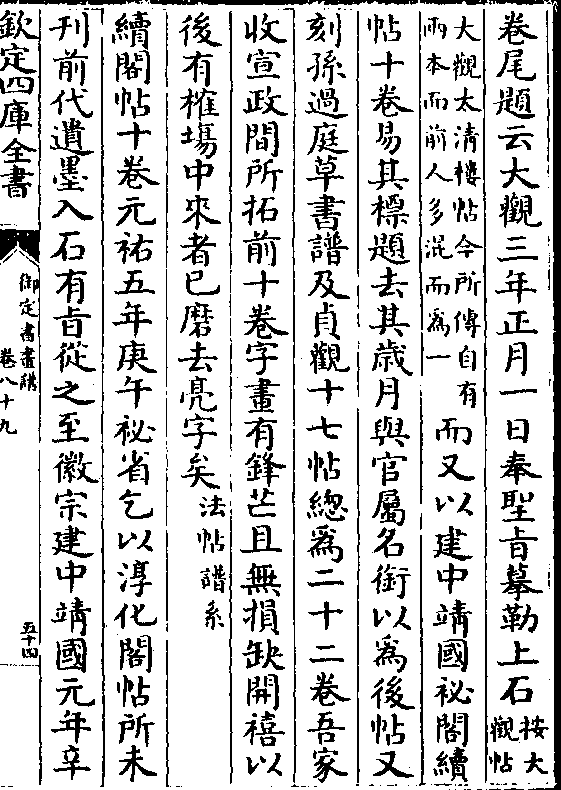 卷尾題云大觀三年正月一日奉聖旨摹勒上石按大觀帖
大觀太清樓帖今所傳自有兩本而前人多混而為一而又以建中靖國祕閣續
帖十卷易其標題去其歲月與官屬名銜以為後帖又
刻孫過庭草書譜及貞觀十七帖總為二十二卷吾家
收宣政間所拓前十卷字畫有鋒芒且無損缺開禧以
後有榷場中來者已磨去亮字矣法帖譜系
續閣帖十卷元祐五年庚午祕省乞以淳化閣帖所未
刊前代遺墨入石有旨從之至徽宗建中靖國元年辛
欽定四庫全書
御定書畫譜
卷八十九
五十四